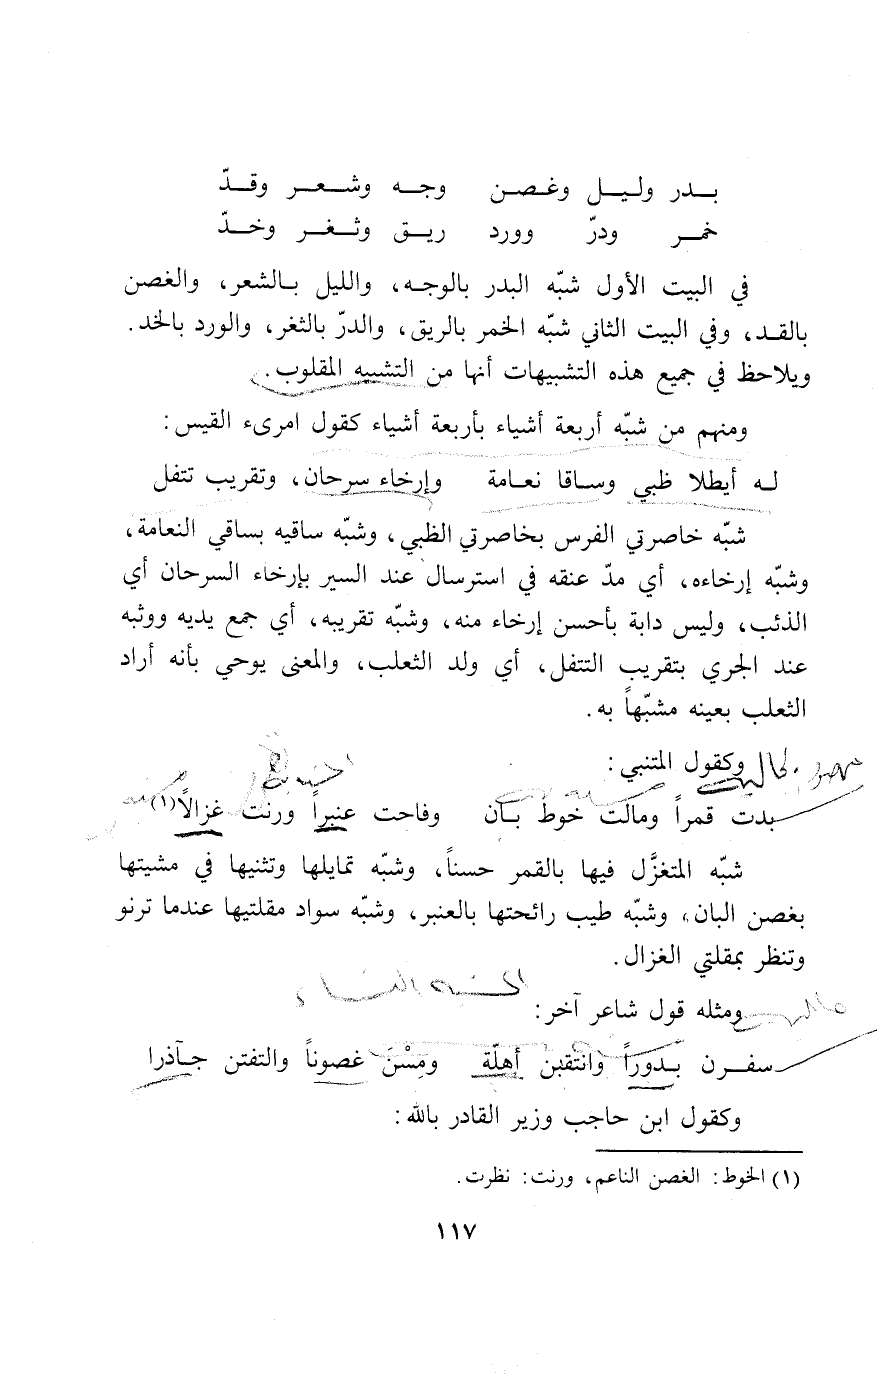 بدر وليل وغصن وجه وشعر وقدّ
خمر ودرّ وورد ريق وثغر وخدّ
في البيت الأول شبّه البدر بالوجه، والليل بالشعر، والغصن
بالقد، وفي البيت الثاني شبّه الخمر بالريق، والدرّ بالثغر، والورد بالخد.
ويلاحظ في جميع هذه التشبيهات أنها من التشبيه المقلوب.
ومنهم من شبّه أربعة أشياء بأربعة أشياء كقول امرىء القيس:
له أيطلا ظبي وساقا نعامة وإرخاء سرحان، وتقريب تتفل
شبّه خاصرتي الفرس بخاصرتي الظبي، وشبّه ساقيه بساقي النعامة،
وشبّه إرخاءه، أي مدّ عنقه في استرسال عند السير بإرخاء السرحان أي
الذئب، وليس دابة بأحسن إرخاء منه، وشبّه تقريبه، أي جمع يديه ووثبه
عند الجري بتقريب التتفل، أي ولد الثعلب، والمعنى يوحي بأنه أراد
الثعلب بعينه مشبّهاً به.
وكقول المتنبي:
بدت قمراً ومالت خوط بان وفاحت عنبراً ورنت غزالاً(١)
شبّه المتغزَّل فيها بالقمر حسناً، وشبّه تمايلها وتثنيها في مشيتها
بغصن البان، وشبّه طيب رائحتها بالعنبر، وشبّه سواد مقلتيها عندما ترنو
وتنظر بمقلتي الغزال.
ومثله قول شاعر آخر:
سفرن بدوراً وانتقبن أهلّة ومِسْنَ غصوناً والتفتن جآذرا
وكقول ابن حاجب وزير القادر بالله:
(١) الخوط: الغصن الناعم، ورنت: نظرت.
١١٧